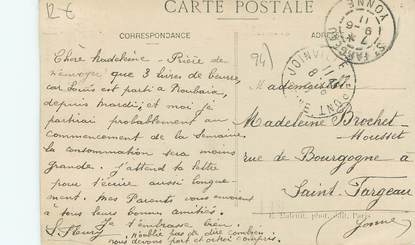 12-€
CARTE POSTALE
CORRESPONDANCE
94)
Chère Madeleine - Prière de
n'envoyer que 3 livres de beurre,
car Louis est parti à Roubaix,
depuis Mardi, et moi je
partirai probablement au
commencement de la Semaine
la consommation sera moins
grande. J'attend ta lettre
pour t'écrire aussi longue-
ment. Mes Parents vous envoient
à tous leurs bonnes amitiés.
Je t'embrasse bien.
N'oublie pas de dire combien
nous devons port et octroi compris.
ST FARGEAU
YONNE
Mademoiselle
Madeleine Brochet-
Mousset
rue de Bourgogne à
Saint-Fargeau
Yonne
édit. Paris